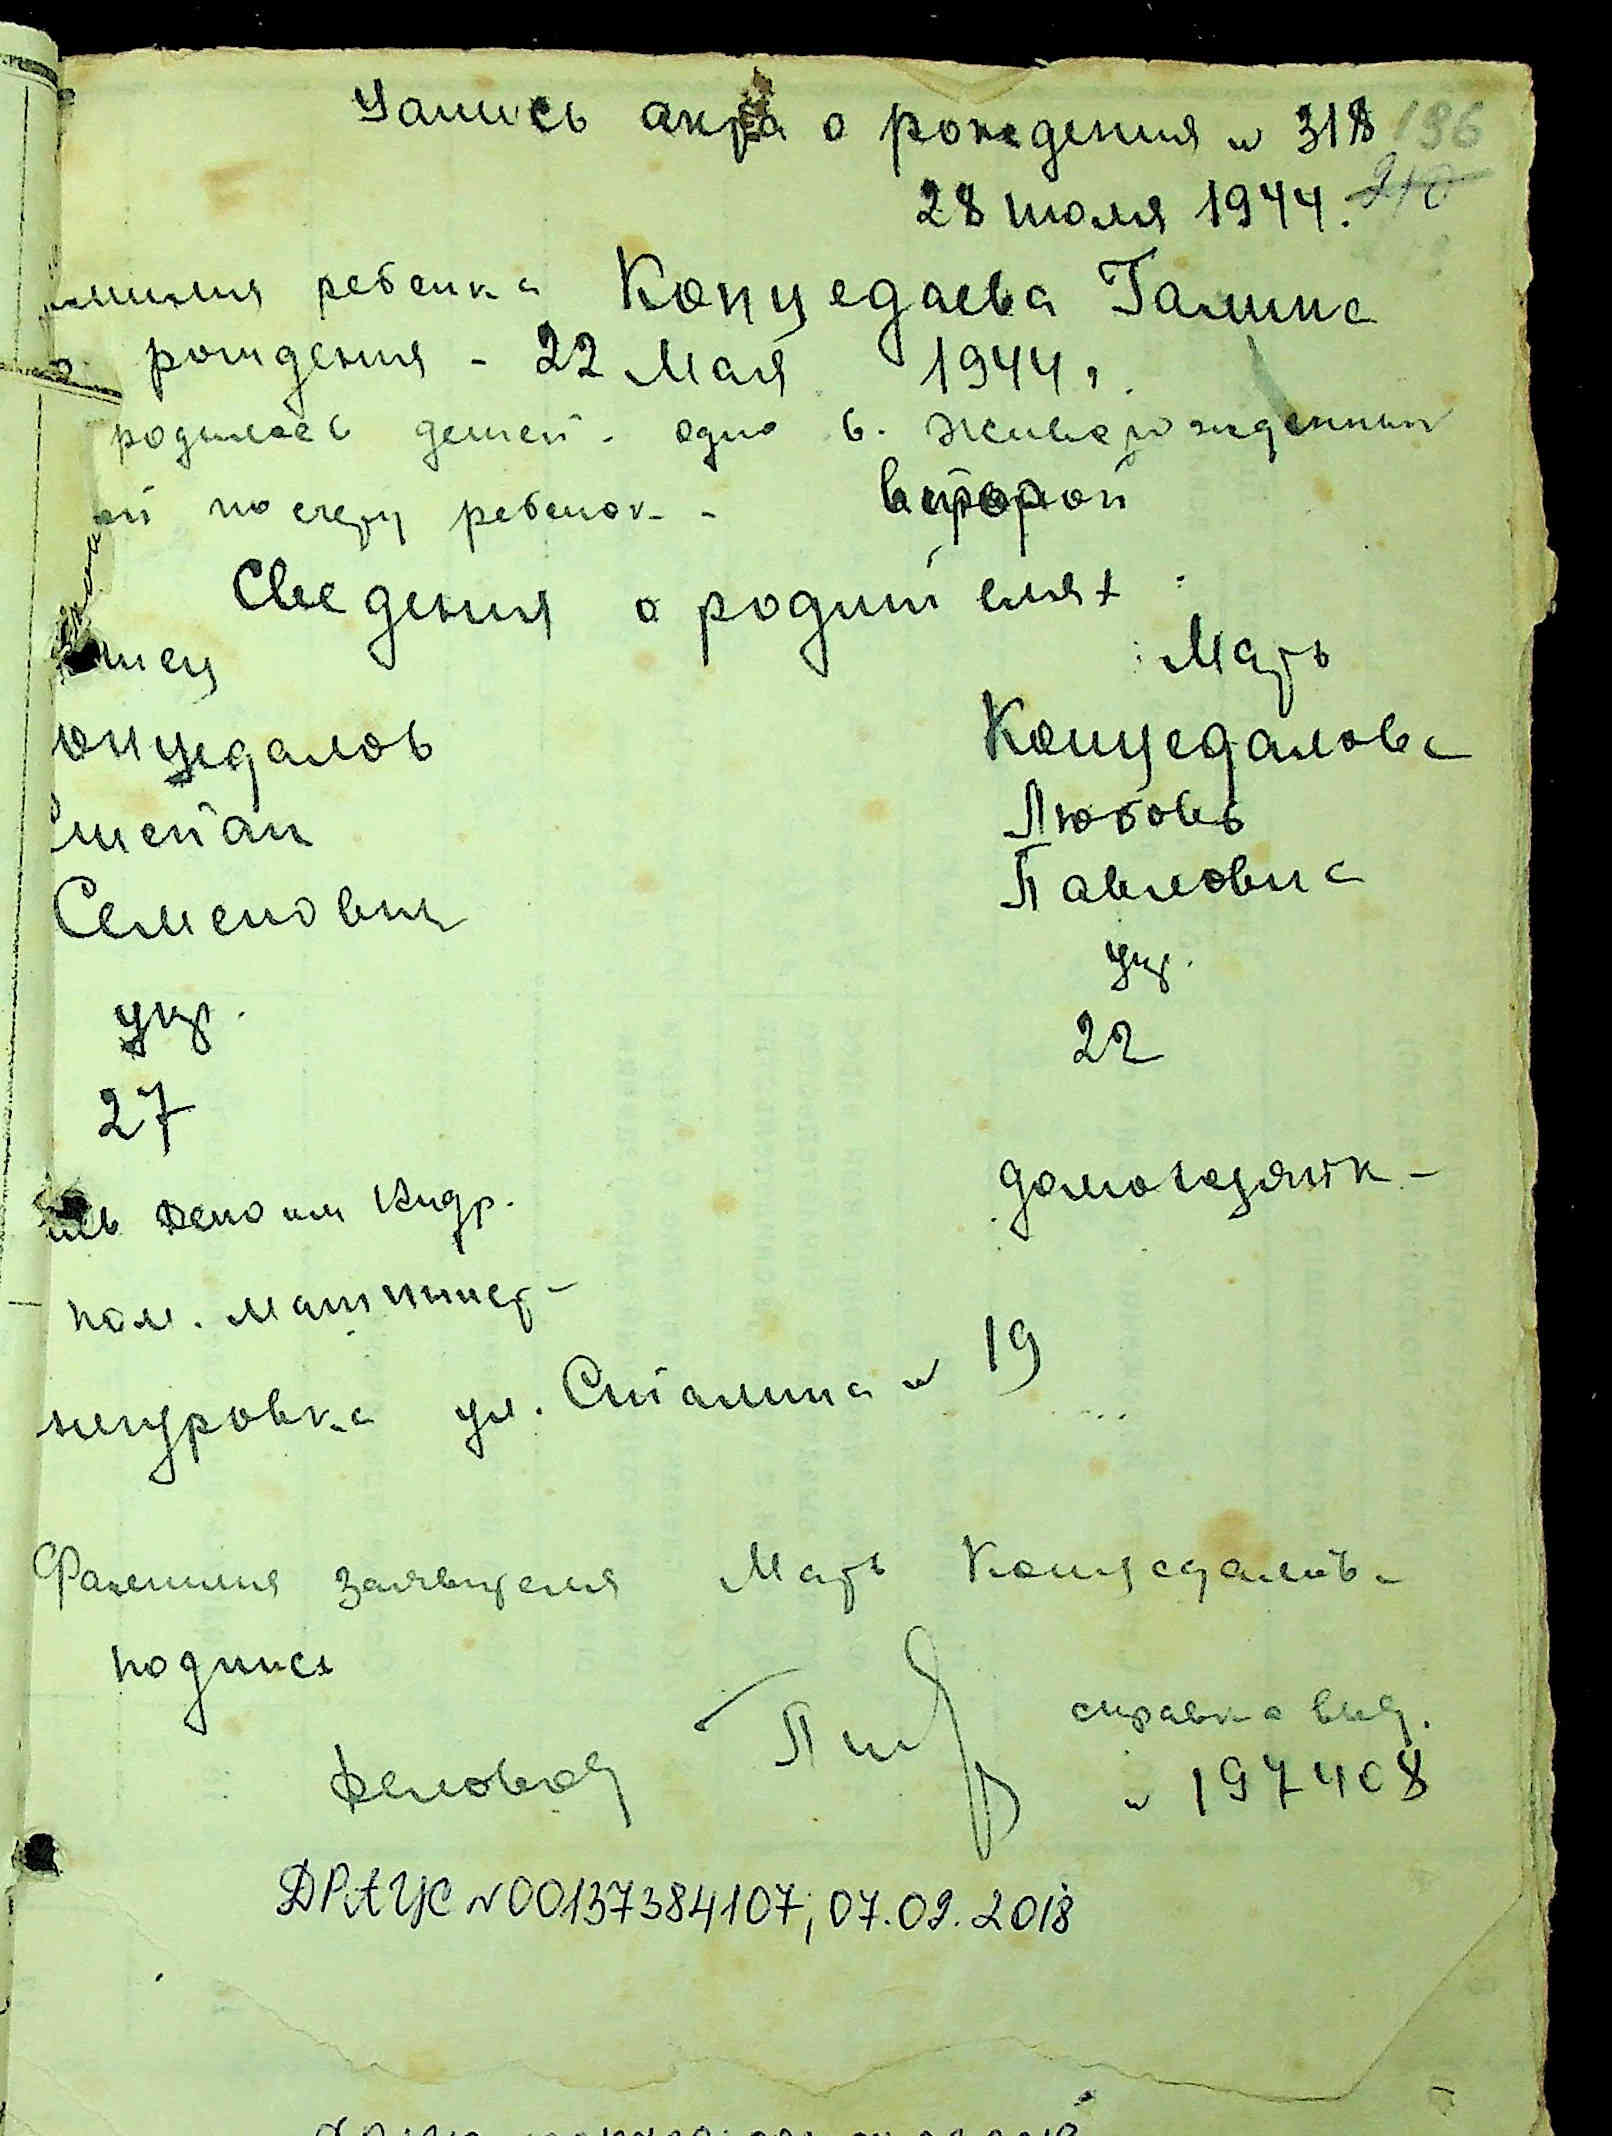 Запись акта о рождения N 318 196
28 июля 1944. 210
милия ребенка Концедаева Галина
рождения - 22 Мая 1944 г.
родилось детей - одно в. живорожденный
ой по счету ребенок - второй
Сведения о родителях:
Отец Мать
онцедалов Концедалова
Степан Любовь
Семенович Павловна
укр. укр.
27 22
Депо им Андр. домохозяйк-
пом. машинист-
ул. Сталина N 19
Фамилия заявителя Мать Концедалова
подписи
справка выд.
Деловод N 197408
ДРАЦС N 00137384107; 07.09.2018